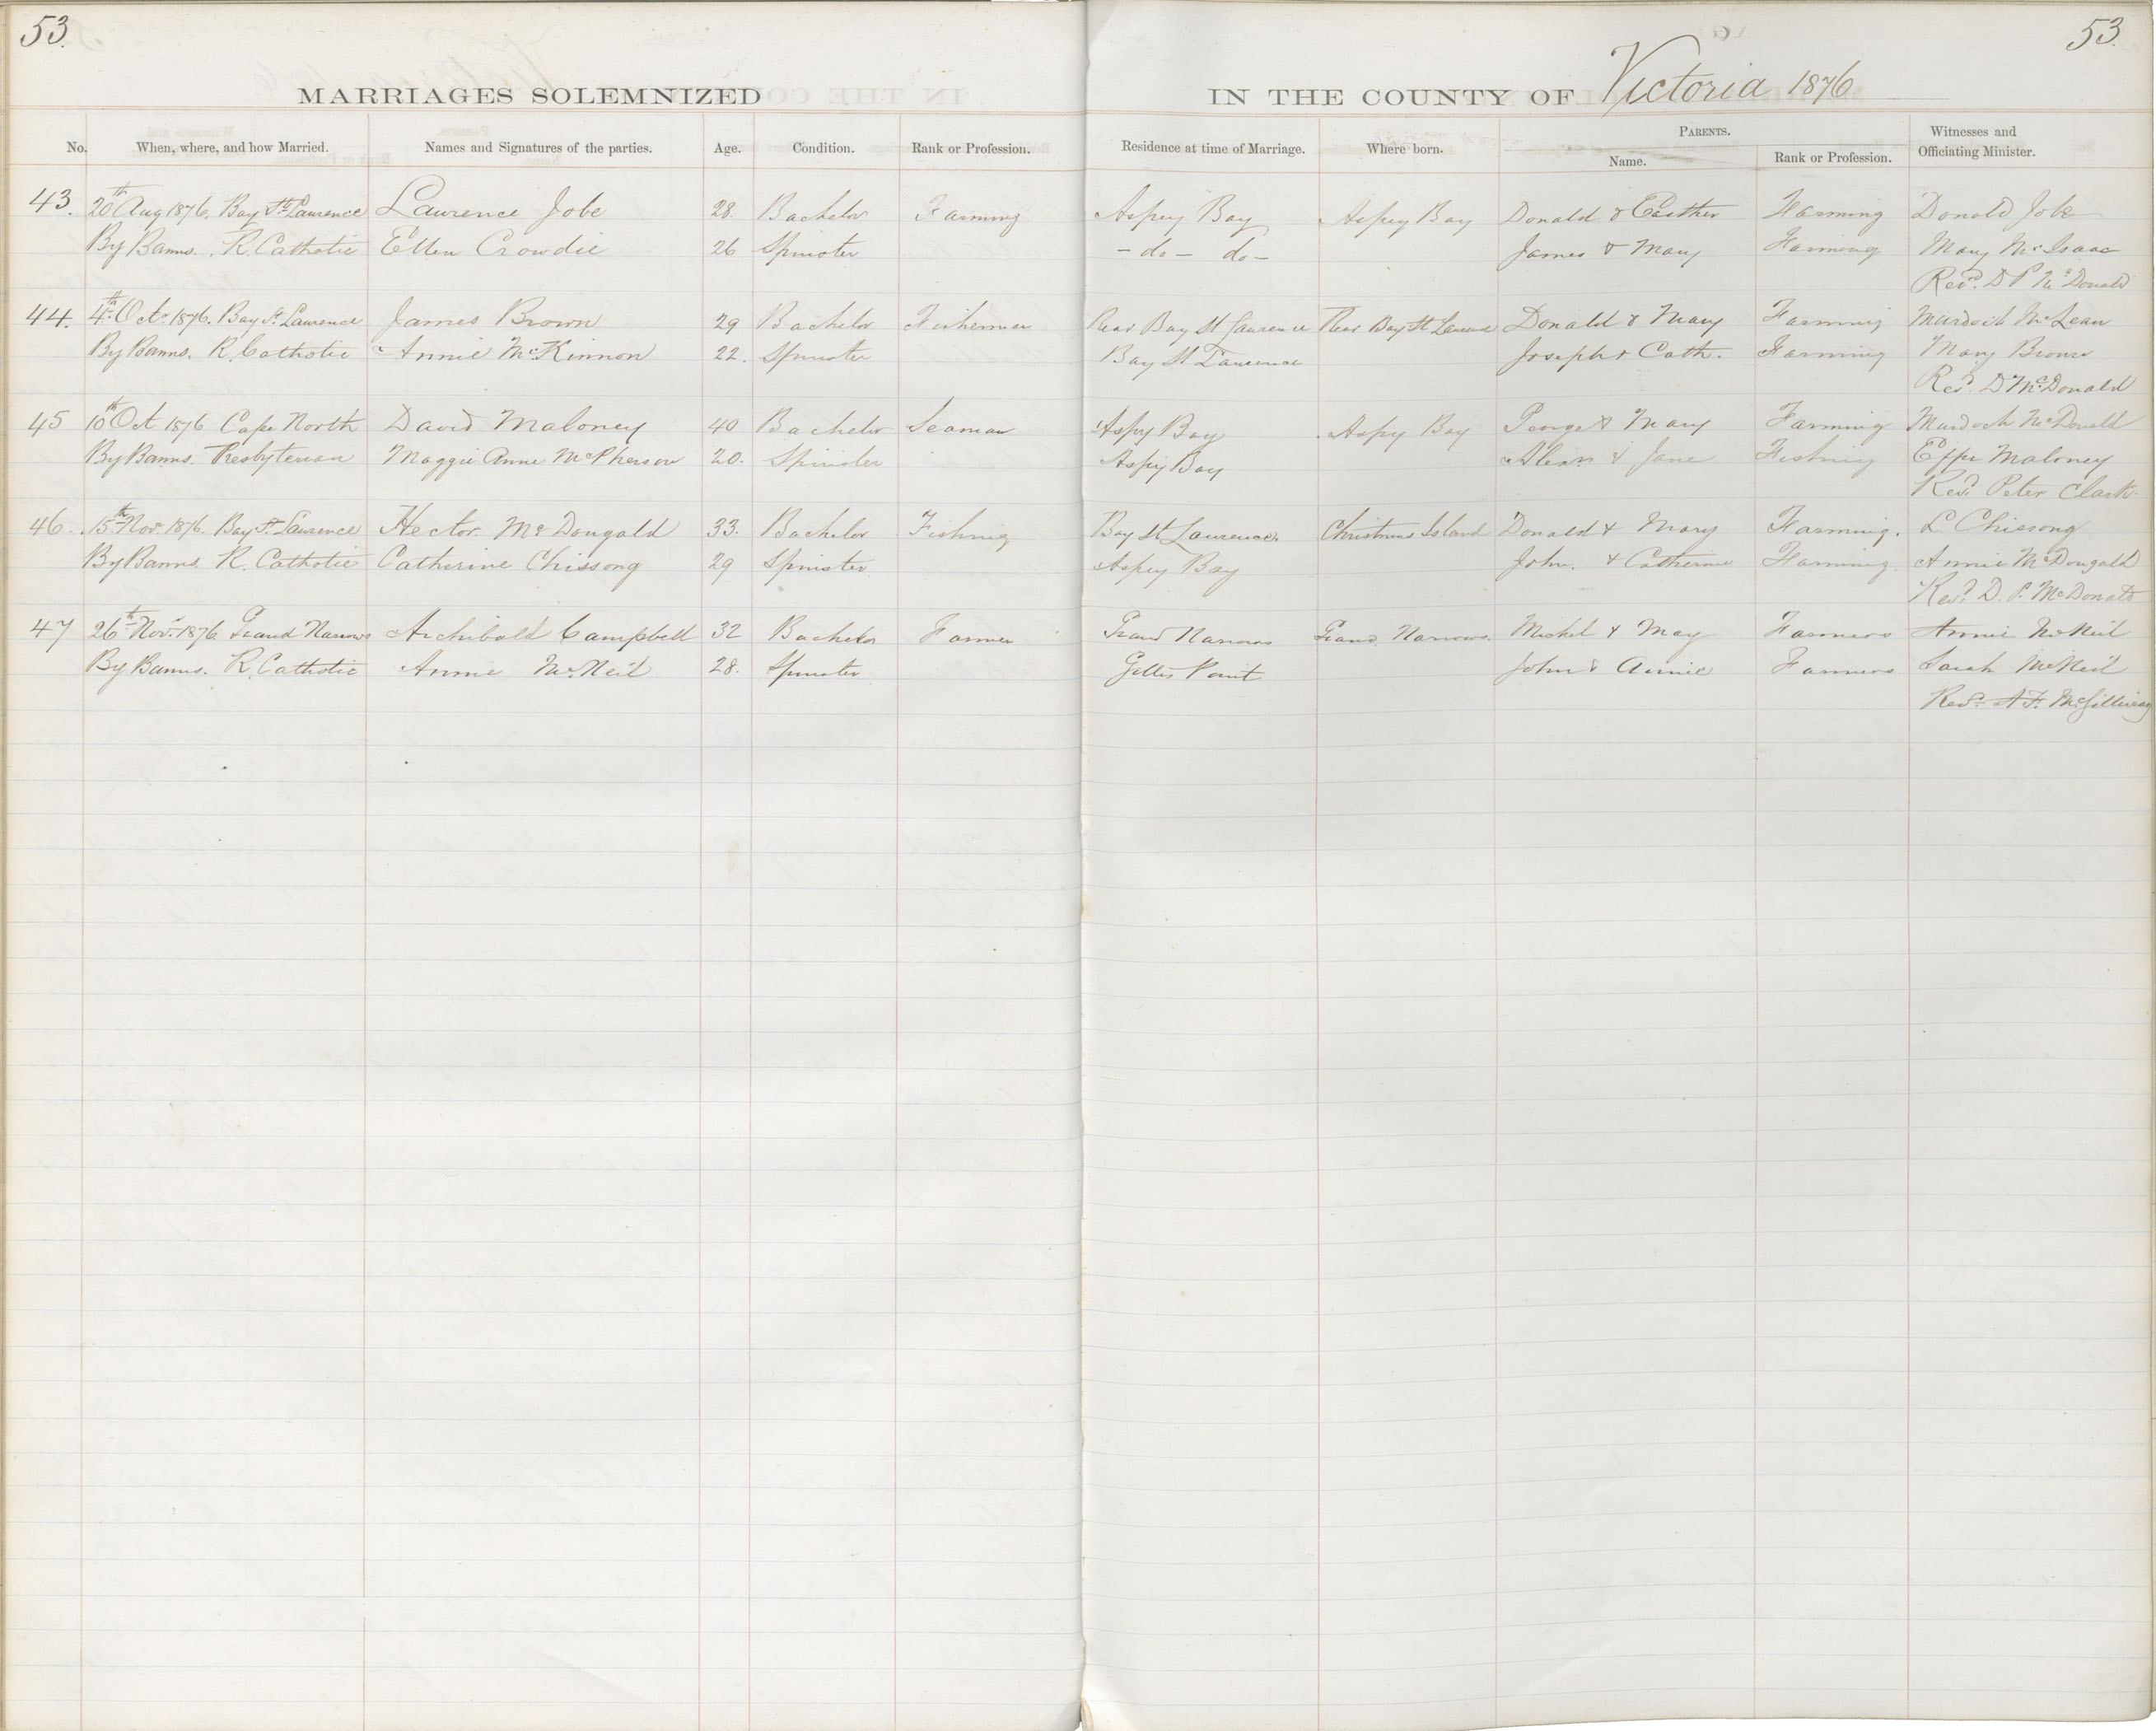 53. 53.
MARRIAGES SOLEMNIZED IN THE COUNTY OF Victoria 1876
No. When, where, and how Married. Names and Signatures of the parties. Age. Condition. Rank or Profession. Residence at time of Marriage. Where born. PARENTS. Name. Rank or Profession. Witnesses and Officiating Minister.
43. 20th Aug 1876. Bay St Laurence Laurence Jobe 28. Bachelor Farming Aspey Bay Aspey Bay Donald & Easther Farming Donald Jobe
By Banns. R. Catholic Ellen Crowdie 26 Spinster - do - do - James & Mary Farming Mary McIsaac
Revd. D P McDonald
44. 4th Octr. 1876. Bay St. Laurence James Brown 29 Bachelor Fisherman Rear Bay St Laurence Rear Bay St Laurence Donald & Mary Farming Murdoch McLean
By Banns. R. Catholic Annie McKinnon 22. Spinster Bay St Laurence Joseph & Cath. Farming Mary Brown
Revd. D McDonald
45 10th Oct 1876 Cape North David Maloney 40 Bachelor Seaman Aspy Bay Aspy Bay George & Mary Farming Murdoch McDonald
By Banns. Presbyterian Maggie Anne McPherson 20. Spinster Aspy Bay Alexr. & Jane Fishing Effie Maloney
Revd. Peter Clark.
46. 15th Novr. 1876. Bay St. Laurence Hector McDougald 33. Bachelor Fishing Bay St Laurence. Christmas Island Donald & Mary Farming. L Chissong
By Banns. R. Catholic Catherine Chissong 29 Spinster Aspey Bay John. & Catherine Farming. Annie McDougald
Revd. D. P. McDonald
47 26th Novr. 1876 Grand Narrows Archibald Campbell 32 Bachelor Farmer Grand Narrows Grand Narrows. Michel & May Farmers Annie McNeil
By Banns. R. Catholic Annie McNeil 28. Spinster Gillis Point John & Annie Farmers Sarah McNeil
Revd. A. F. McGillivray